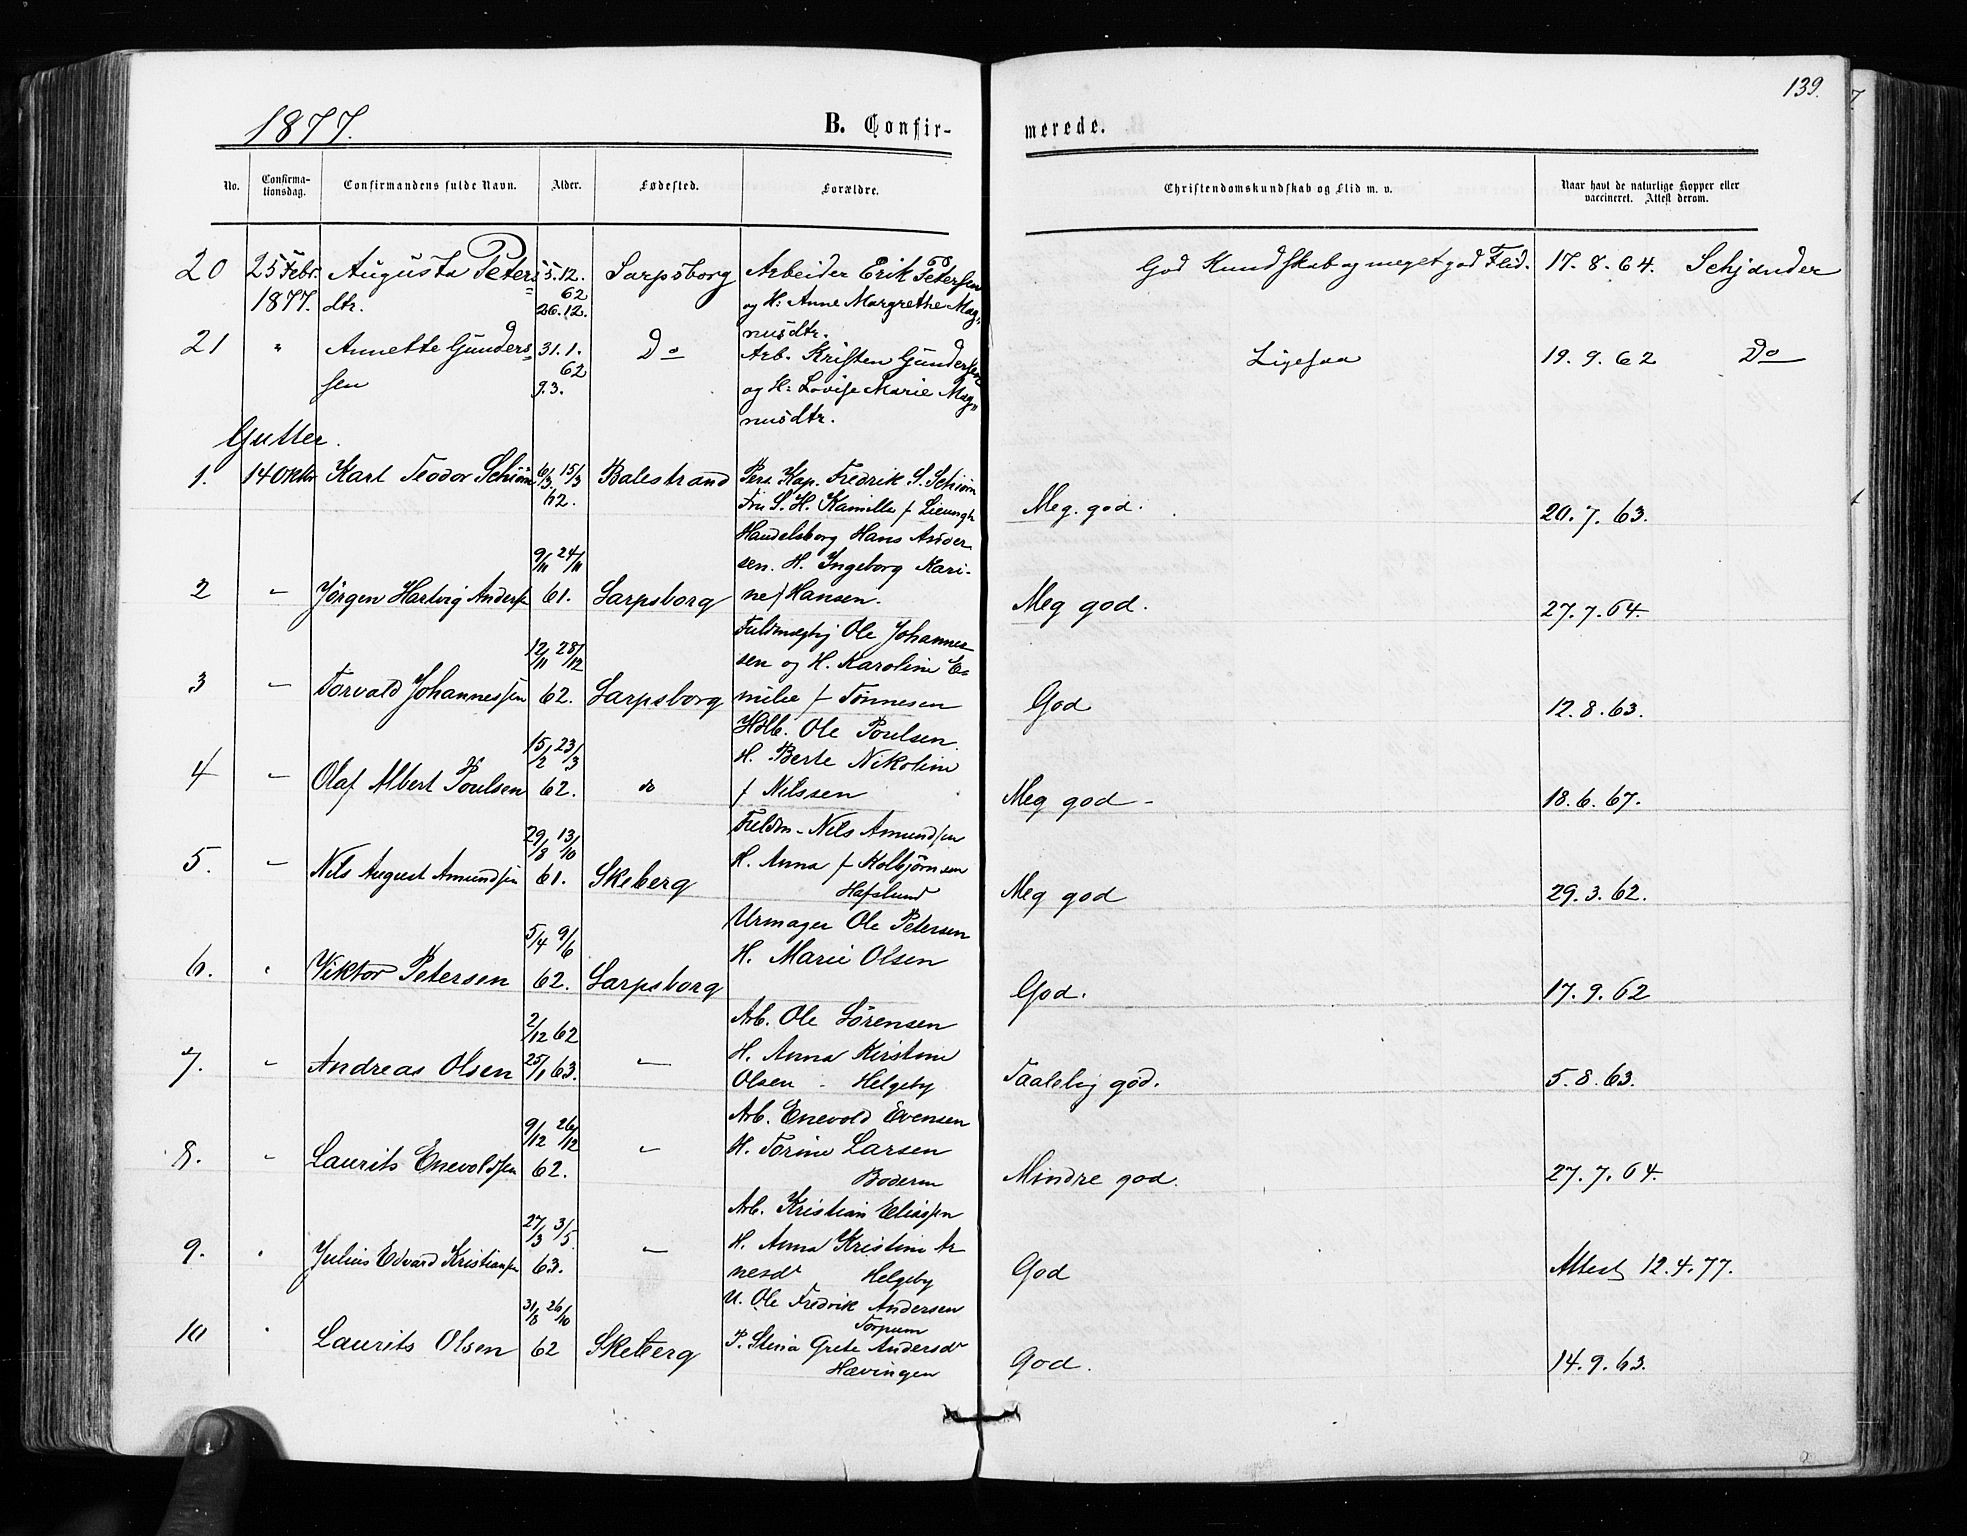 1877.
B. Confir-
merede.
139.
No.
Confirma-
tionsdag.
Confirmandens fulde Navn.
Alder.
Fødested.
Forældre.
Christendomskundskab og Flid m. v.
Naar havt de naturlige Kopper eller
vaccineret. Attest derom.
20 25 Febr. Augusta Peters= 5.12. Sarpsborg Arbeider Erik Petersen God Kundskab og meget god Flid. 17.8.64. Schjander
1877. dtr. 62 og H: Anne Margrethe Mag=
26.12. nusdtr.
21 " Annette Gunders= 31.1. Do Arb. Kristen Gundersen Ligesaa 19.9.62 Do
sen 62 og H: Lovise Marie Mag=
9.3. nusdtr.
Gutter.
1. 14 Oktr Karl Teodor Schiøn 6/3 15/3 Balestrand Pers. Kap. Fredrik S. Schiøn
62. Fru S. H. Kamille f Lieungh Meg. god. 20.7.63.
Handelsborg Hans Ander
9/11 24/11 sen. H. Ingeborg Kari-
2 " Jørgen Hartvig Andersen 61. Sarpsborg ne f Hansen. Meg god. 27.7.64.
Fuldmægtig Ole Johannes
12/11 28/12 sen og H. Karoline E-
3 " Torvald Johannessen 62. Sarpsborg milie f Tönnesen God 12.8.63.
Hdlb. Ole Poulsen.
15/2 23/3 H. Berte Nikoline
4 " Olaf Albert Poulsen 62. do f Nilssen Meg god - 18.6.67.
29/8 13/10 Fuldm- Nils Amundsen
5. " Nils August Amundsen 61. Skeberg H. Anna f Kolbjörnsen
Hafslund Meg god 29.3.62.
5/4 9/6 Urmager Ole Petersen
6. " Viktor Petersen 62. Sarpsborg H. Marie Olsen God. 17.9.62
2/12 62 Arb. Ole Sörensen
7. " Andreas Olsen 25/1 63. " H. Anna Kirstine
Olsen - Helgeby Taalelig god. 5.8.63.
9/12 26/12 Arb. Enevold Evensen
8. " Laurits Enevoldsen 62. " H. Torine Larsen
Mindre god. 27.7.64.
27/3 3/5 Arb. Kristian Eliassen
9. " Julius Edvard Kristiansen 63. " H. Anna Kristine Ar
nesdr Helgeby God Attest 12.4.77.
31/8 26/10 U. Ole Fredrik Andersen
Torpum
10 " Laurits Olsen 62 Skeberg P. Stina Grete Andersdr
Hævingen God. 14.9.63.